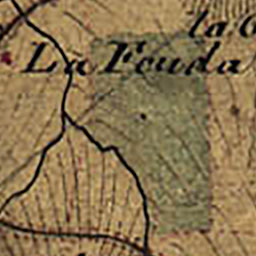 la
La Fouda